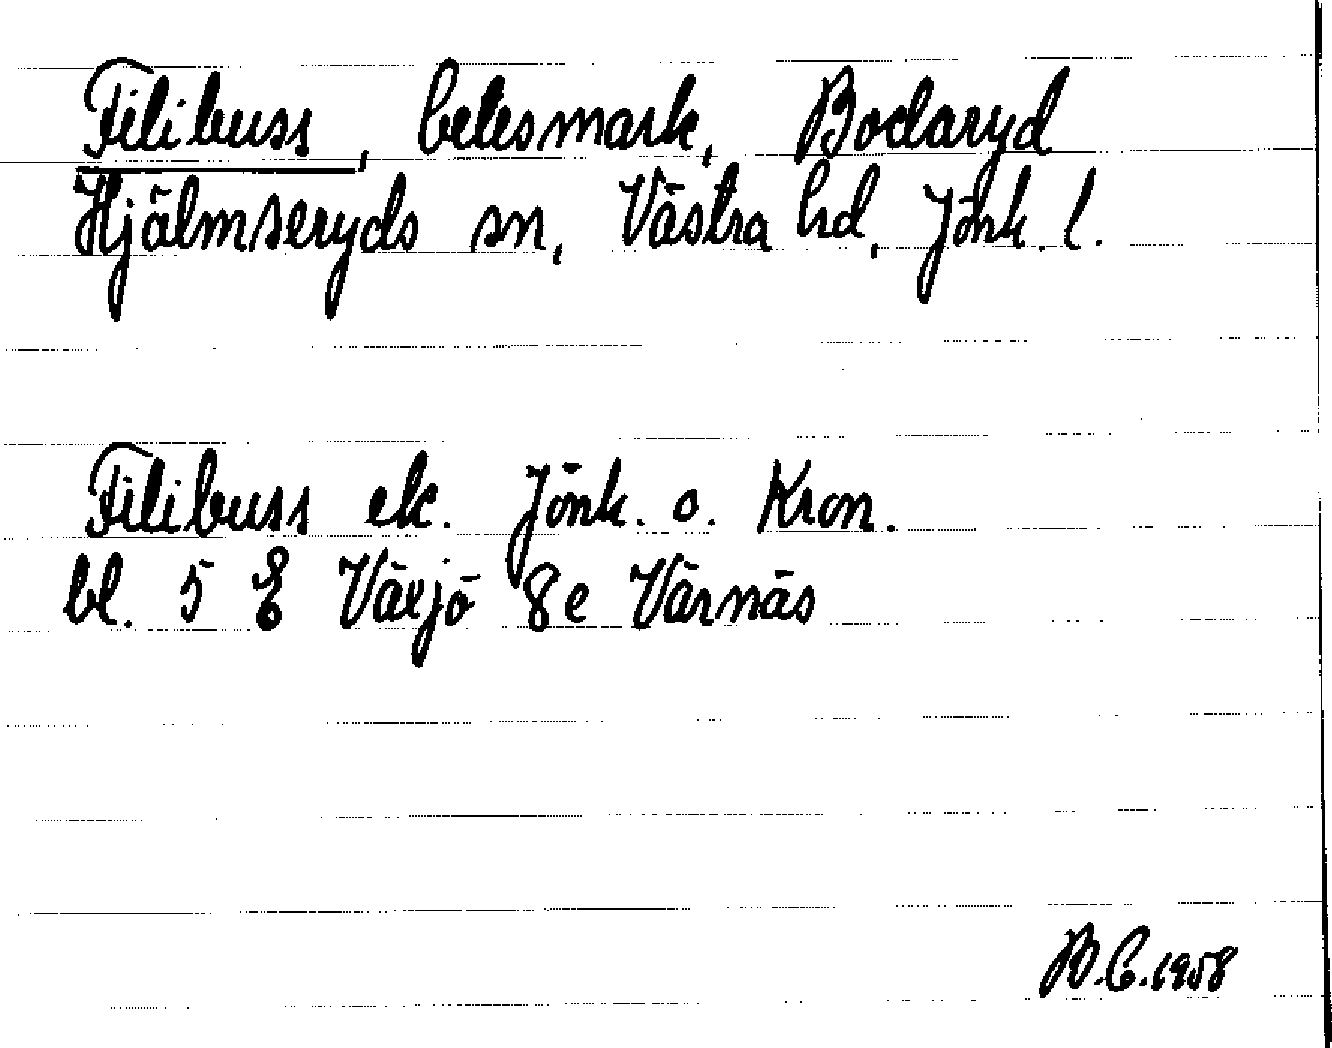 Filibuss, betesmark, Bodaryd
Hjälmseryds sn, Västra hd, Jönk. l.
Filibuss ek. Jönk. o. Kron.
bl. 5 E Växjö 8e Värnäs
B.C. 1958